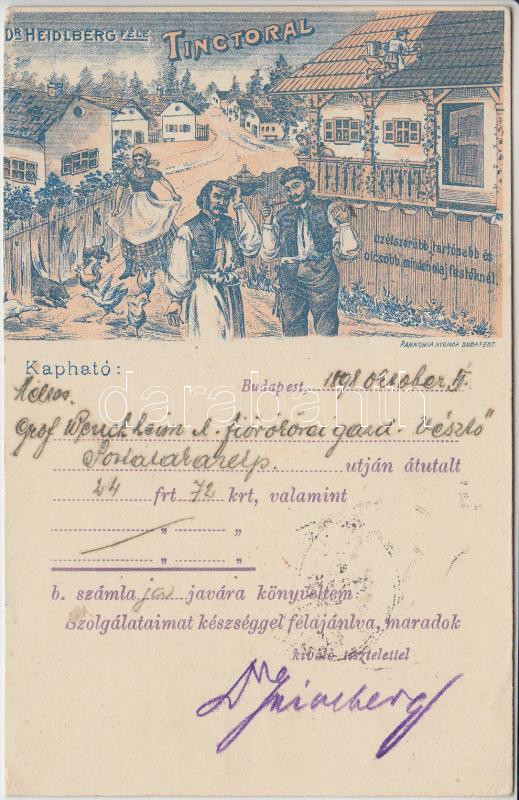 DR HEIDLBERG FÉLE TINCTORAL
czélszerűbb, tartósabb és
olcsóbb minden olajfestéknél.
PANNONIA NYOMDA BUDAPEST.
Kapható:
Budapest, 1898 october
Gróf Wenckheim
utján átutalt
24 frt 72 krt, valamint
" "
" "
b. számla javára könyveltem.
Szolgálataimat készséggel felajánlva, maradok
kiváló tisztelettel
Dr Heidlberg
darabanth